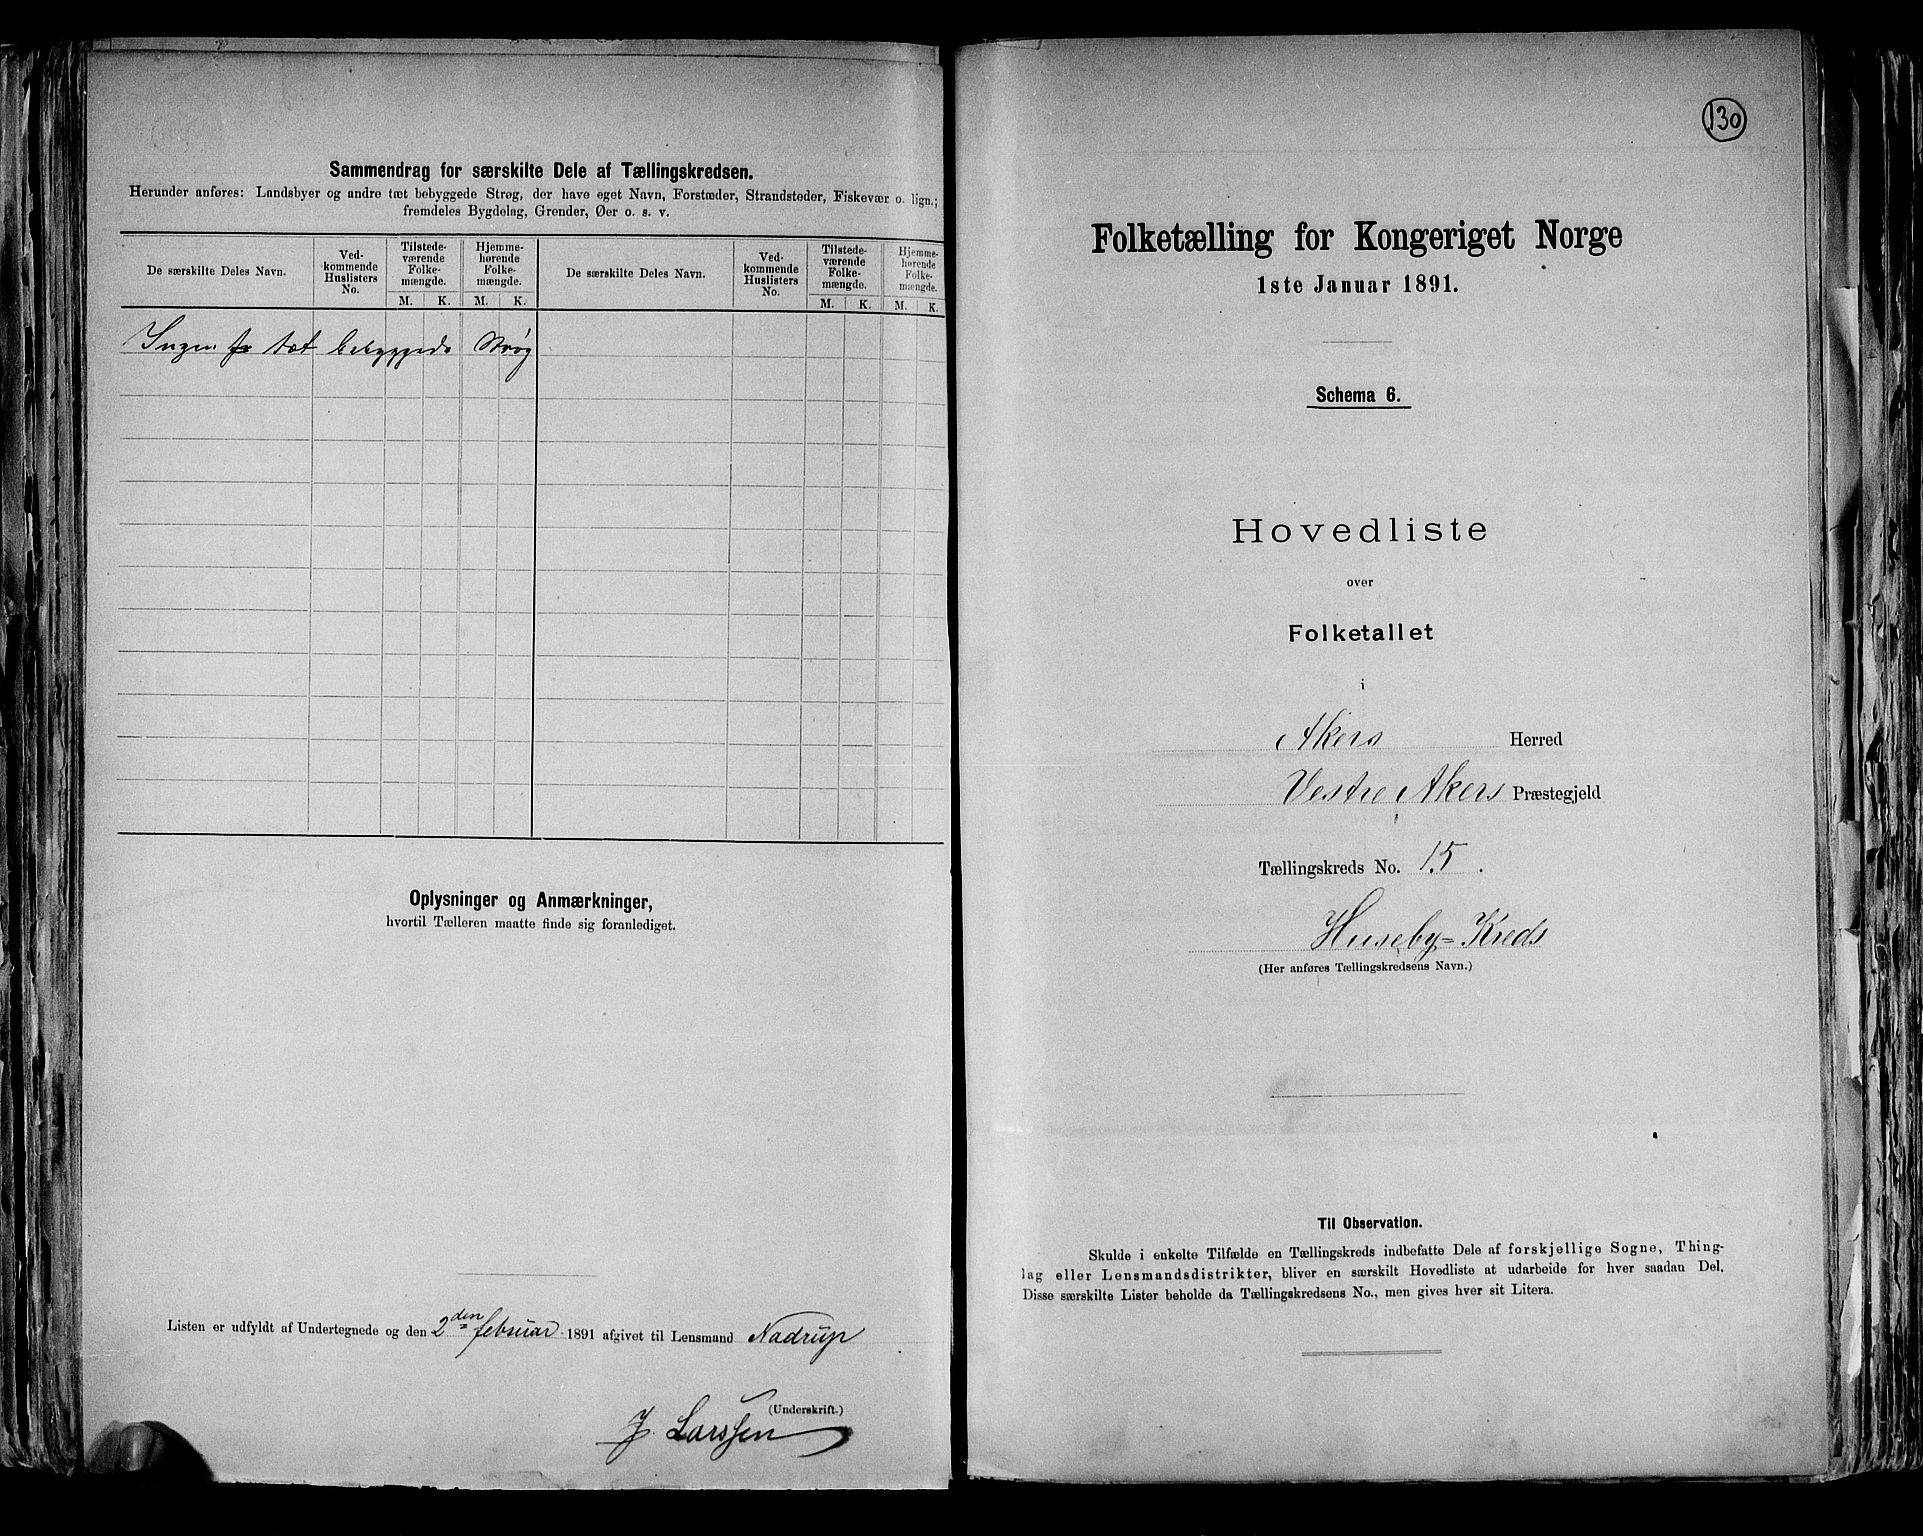 Sammendrag for særskilte Dele af Tællingskredsen.
Herunder anføres: Landsbyer og andre tæt bebyggede Strøg, der have eget Navn, Forstæder, Strandsteder, Fiskevær o. lign.;
fremdeles Bygdelag, Grender, Øer o. s. v.
De særskilte Deles Navn.
Ved-
kommende
Huslisters
No.
Tilstede-
værende
Folke-
mængde.
Hjemme-
hørende
Folke-
mængde.
M. K. M. K.
De særskilte Deles Navn.
Ved-
kommende
Huslisters
No.
Tilstede-
værende
Folke-
mængde.
Hjemme-
hørende
Folke-
mængde.
M. K. M. K.
Ingen tæt bebyggede Strøg
Oplysninger og Anmærkninger,
hvortil Tælleren maatte finde sig foranlediget.
Listen er udfyldt af Undertegnede og den 2den februar 1891 afgivet til Lensmand Nadrup
(Underskrift.)
J. Larssen
130
Folketælling for Kongeriget Norge
1ste Januar 1891.
Schema 6.
Hovedliste
over
Folketallet
i
Akers Herred
Vestre Akers Præstegjeld
Tællingskreds No. 15.
Huseby=Kreds
(Her anføres Tællingskredsens Navn.)
Til Observation.
Skulde i enkelte Tilfælde en Tællingskreds indbefatte Dele af forskjellige Sogne, Thing-
lag eller Lensmandsdistrikter, bliver en særskilt Hovedliste at udarbeide for hver saadan Del.
Disse særskilte Lister beholde da Tællingskredsens No., men gives hver sit Litera.